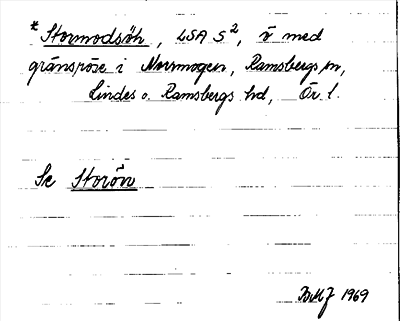 * Stormodsöh, LSA S², ö med
gränsröse i Norrmogen, Ramsbergs sn,
Lindes o. Ramsbergs hd, Ör. l.
Se Storön
BMJ 1969